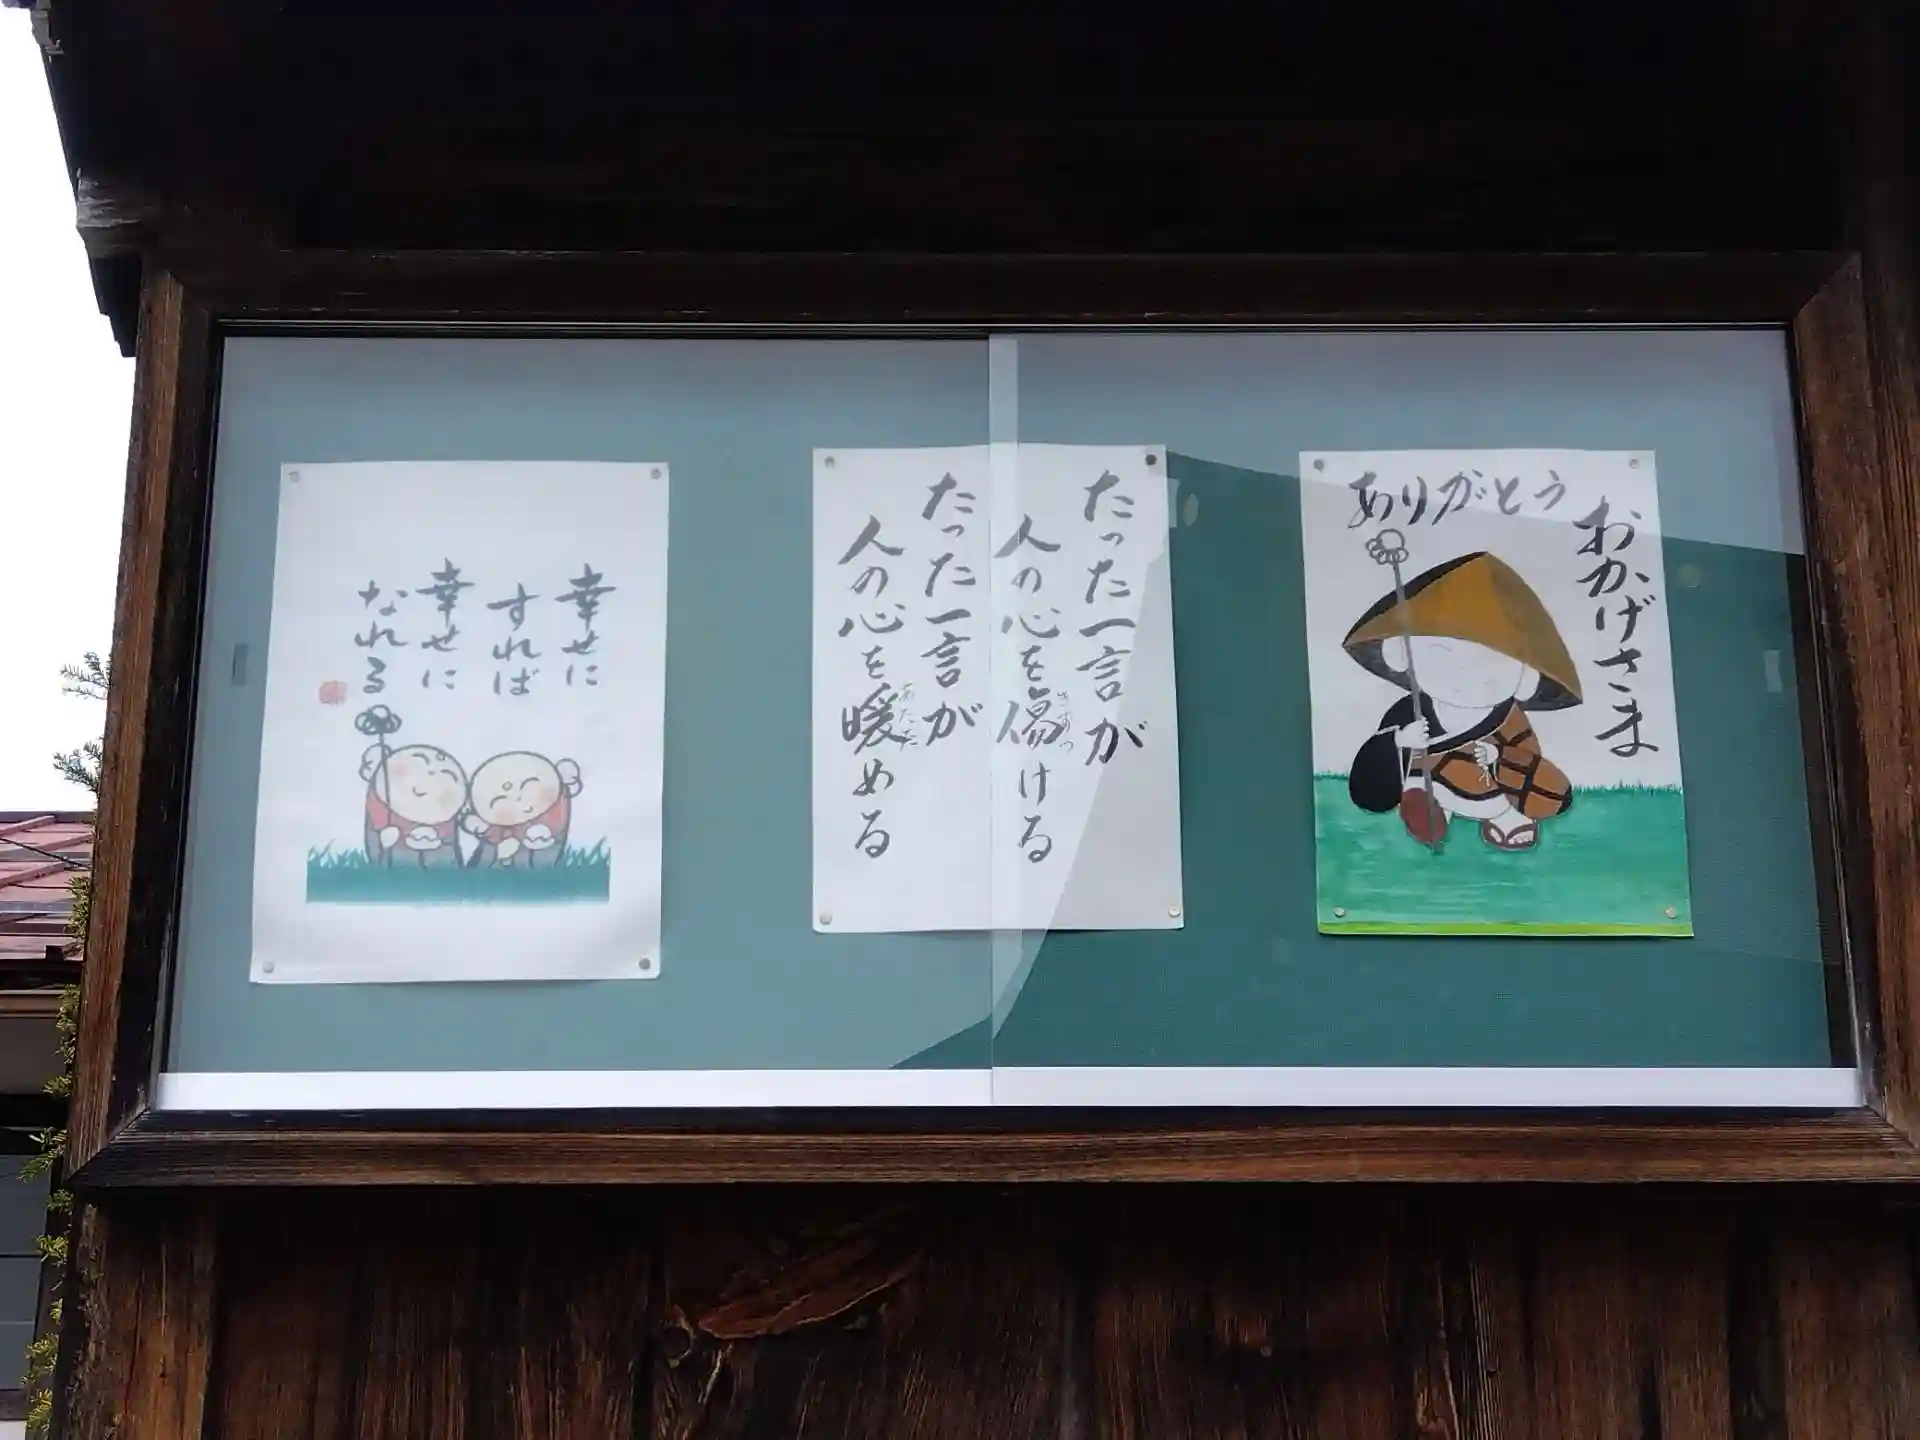 おかげさま
ありがとう
たった一言が
人の心を傷ける
たった一言が
人の心を暖める
幸せに
すれば
幸せに
なれる